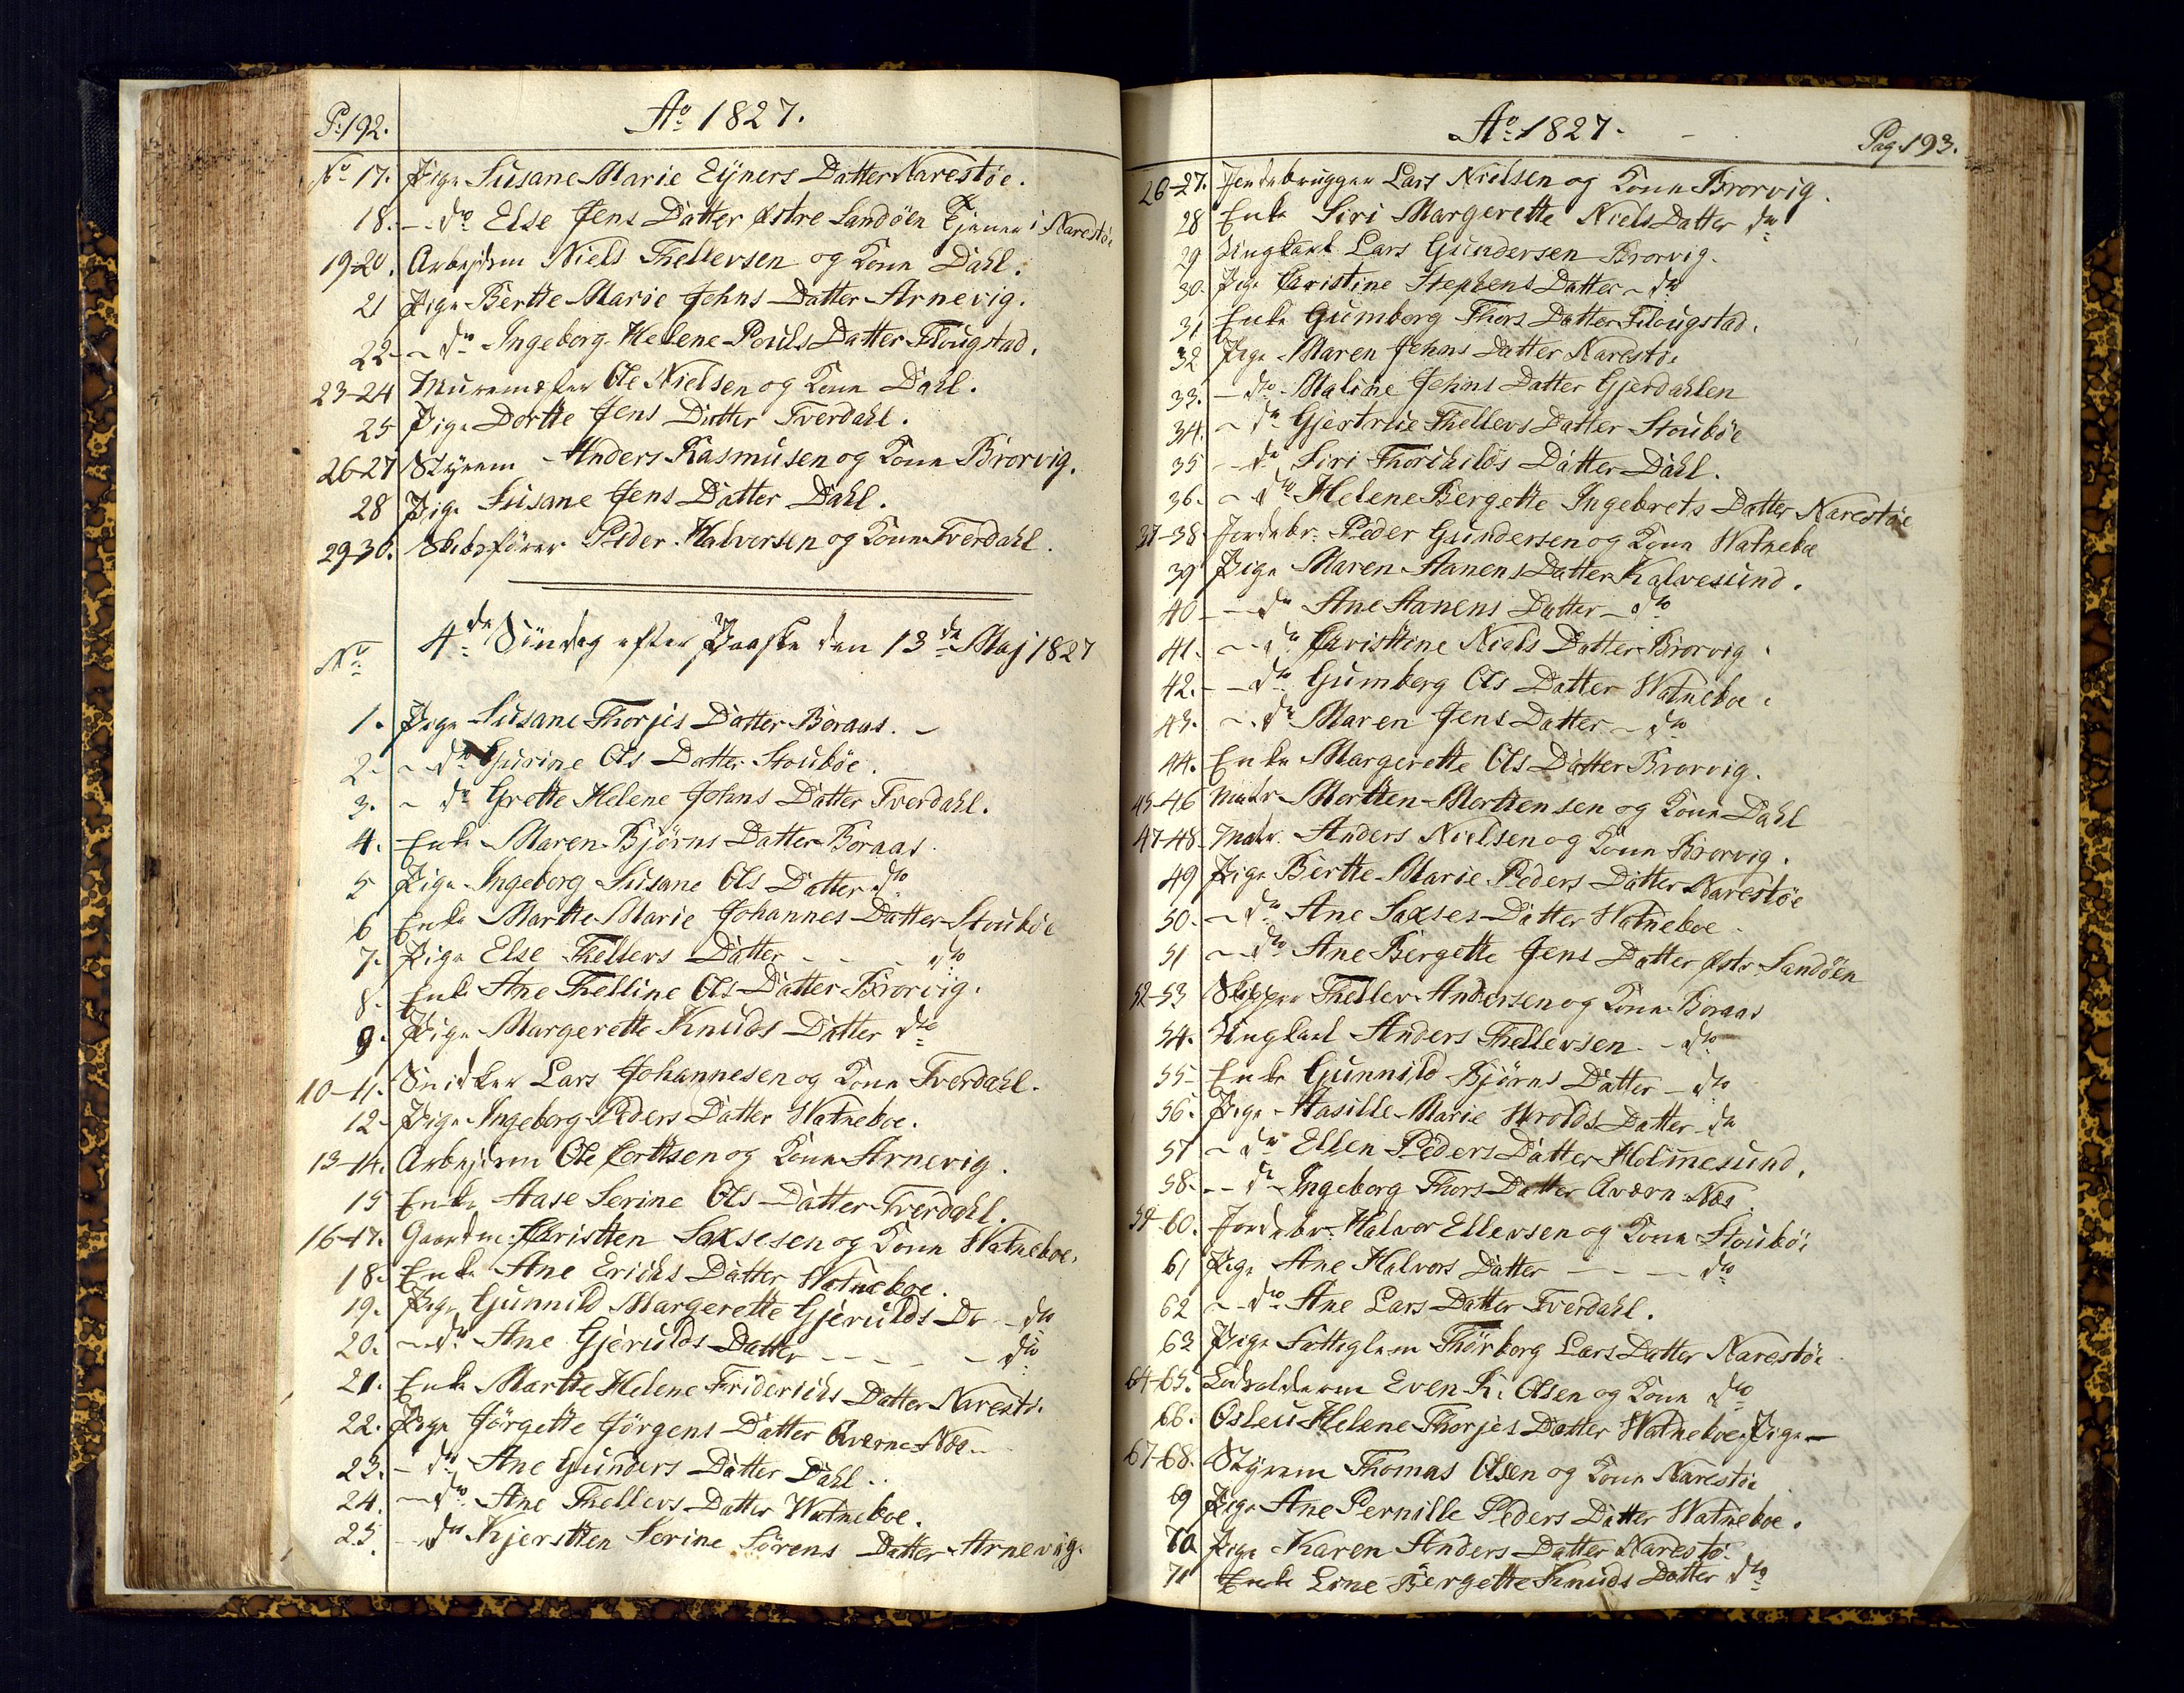 P. 192.
Ao 1827.
No 17. Pige Susane Marie Eÿners Datter Narestöe.
18. - do Else Jens Datter Østre Sandöen tjener i Narestöe
19-20. Arbejdsm Niels Thellefsen og Kone Dahl.
21 Pige Berthe Marie Johns Datter Arnevig.
22 - do Ingeborg Helene Pouls Datter Flougstad.
23-24 Muremester Ole Nielsen og Kone Dahl.
25 Pige Dorthe Jens Datter Tverdahl.
26-27 Styrem Anders Rasmusen og Kone Brorvig.
28 Pige Susane Jens Datter Dahl.
29-30. Skibsfører Peder Halversen og Kone Tverdahl.
No 4de Söndag efter Paaske den 13de Maj 1827
1. Pige Susane Thorjes Datter Boraas. -
2. - do Gurine Ols Datter Stouböe.
3. - do Grethe Helene Johns Datter Tverdahl.
4. Enke Maren Bjørns Datter Boraas.
5 Pige Ingeborg Susane Ols Datter do
6 Enke Marthe Marie Johannes Datter Stouböe
7. Pige Else Thellevs Datter - - - do
8. Enke Ane Thelline Ols Datter Brorvig.
9. Pige Margerethe Knuds Datter do
10-11. Snidker Lars Johannesen og Kone Tverdahl.
12. Pige Ingeborg Peders Datter Watneboe.
13-14. Arbejdsm Ole Corttsen og Kone Arnevig.
15 Enke Aase Serine Ols Datter Tverdahl.
16-17. Gaardm: Christen Saxsesen og Kone Watneboe.
18. Enke Ane Erichs Datter Watneboe.
19. Pige Gunnild Margerethe Gjerulds Dr - do
20. - do Ane Gjerulds Datter - - - - - do
21. Enke Marthe Helene Friderichs Datter Narestö.
22. Pige Jörgette Jörgens Datter Qverne-Næs
23. - do Ane Gunders Datter Dahl.
24. - do Ane Thellevs Datter Watneboe.
25. - do Kjersten Serine Sörens Datter Arnevig.
Ao 1827. -
Pag. 193.
26-27. Jordebrugger Lars Nielsen og Kone Brorvig.
28 Enke Siri Margerethe Niels Datter do
29 Ungkarl Lars Gundersen Brorvig.
30. Pige Christine Stephens Datter - do
31 Enke Gumborg Thors Datter Flougstad.
32 Pige Maren Johns Datter Narestöe
33. - do Maline Johns Datter Gjerdahlen
34. - do Gjertrue Thellevs Datter Stouböe
35 - do Siri Thorchilds Datter Dahl.
36. - do Helene Bergette Ingebrets Datter Narestöe
37-38. Jordebr: Peder Gundersen og Kone Watneboe
39 Pige Maren Aanens Datter Kalvesund.
40 - do Ane Aanens Datter - do
41. - do Christine Niels Datter Brorvig.
42. - do Gumberg Ols Datter Watneboe.
43. - do Maren Jens Datter - do
44. Enke Margerette Ols Datter Brorvig.
45-46 Matr Morthen Morthensen og Kone Dahl
47-48. Matr. Anders Nielsen og Kone Brorvig.
49 Pige Birthe Marie Peders Datter Narestöe
50. - do Ane Saxses Datter Watneboe
51 - do Ane Bergette Jens Datter Østr Sandöen
52-53 Skipper Thellev Andersen og Kone Boraas
54. Ungkarl Anders Thellevsen - do
55- Enke Gunnild Bjørns Datter - do
56. Pige Aasille Marie Wrolds Datter do
57 - do Ellen Peders Datter Holmesund.
58. - do Ingeborg Thors Datter Qværn-Næs
59-60. Jordebr: Halvor Ellevsen og Kone Stouböe
61 Pige Ane Halvors Datter - - - do
62 - do Ane Lars Datter Tverdahl.
63 Pige Fattiglem Thörborg Lars Datter Narestöe
64-65. Lodsoldermn Even K. Olsen og Kone do
66. Osleu Helene Thorjes Datter Watneboe. Pige -
67-68. Styrem Thomas Olsen og Kone Narestöe
69 Pige Ane Pernille Peders Datter Watneboe.
70 Pige Karen Anders Datter Narestö.
71 Enke Lene Bergette Knuds Datter do